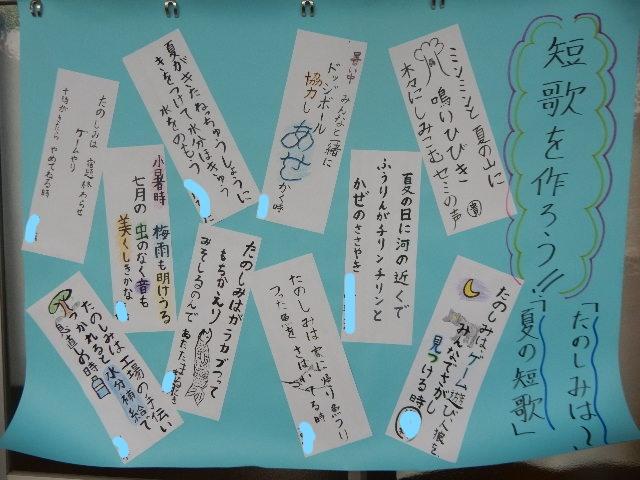 短歌を作ろう!!
「たのしみは～」
「夏の短歌」
ミンミンと夏の山に
鳴いひびき
木々にしみこむセミの声
暑い中みんなと一緒に
ドッジボール
協力し
あせかく時
夏がきたねっちゅうしょうに
きをつけて水分ほきゅう
水をのもう
たのしみは宿題終わらせ
ゲームやり
十時がきたらやめてねる時
夏の日に河の近くで
ふうりんがチリンチリンと
かぜのささやき
小暑時梅雨も明けうる
七月の虫のなく音も
美くしきかな
たのしみは、ゲーム遊び人狼を
みんなでさがし
見つける時
たのしみは家に帰り魚つり
つった魚をさばいてる時
たのしみはがラカブつって
もちかえり
みそしるのんで
たのしみは工場の手伝い
つかれるし水分補給で
息直しの時